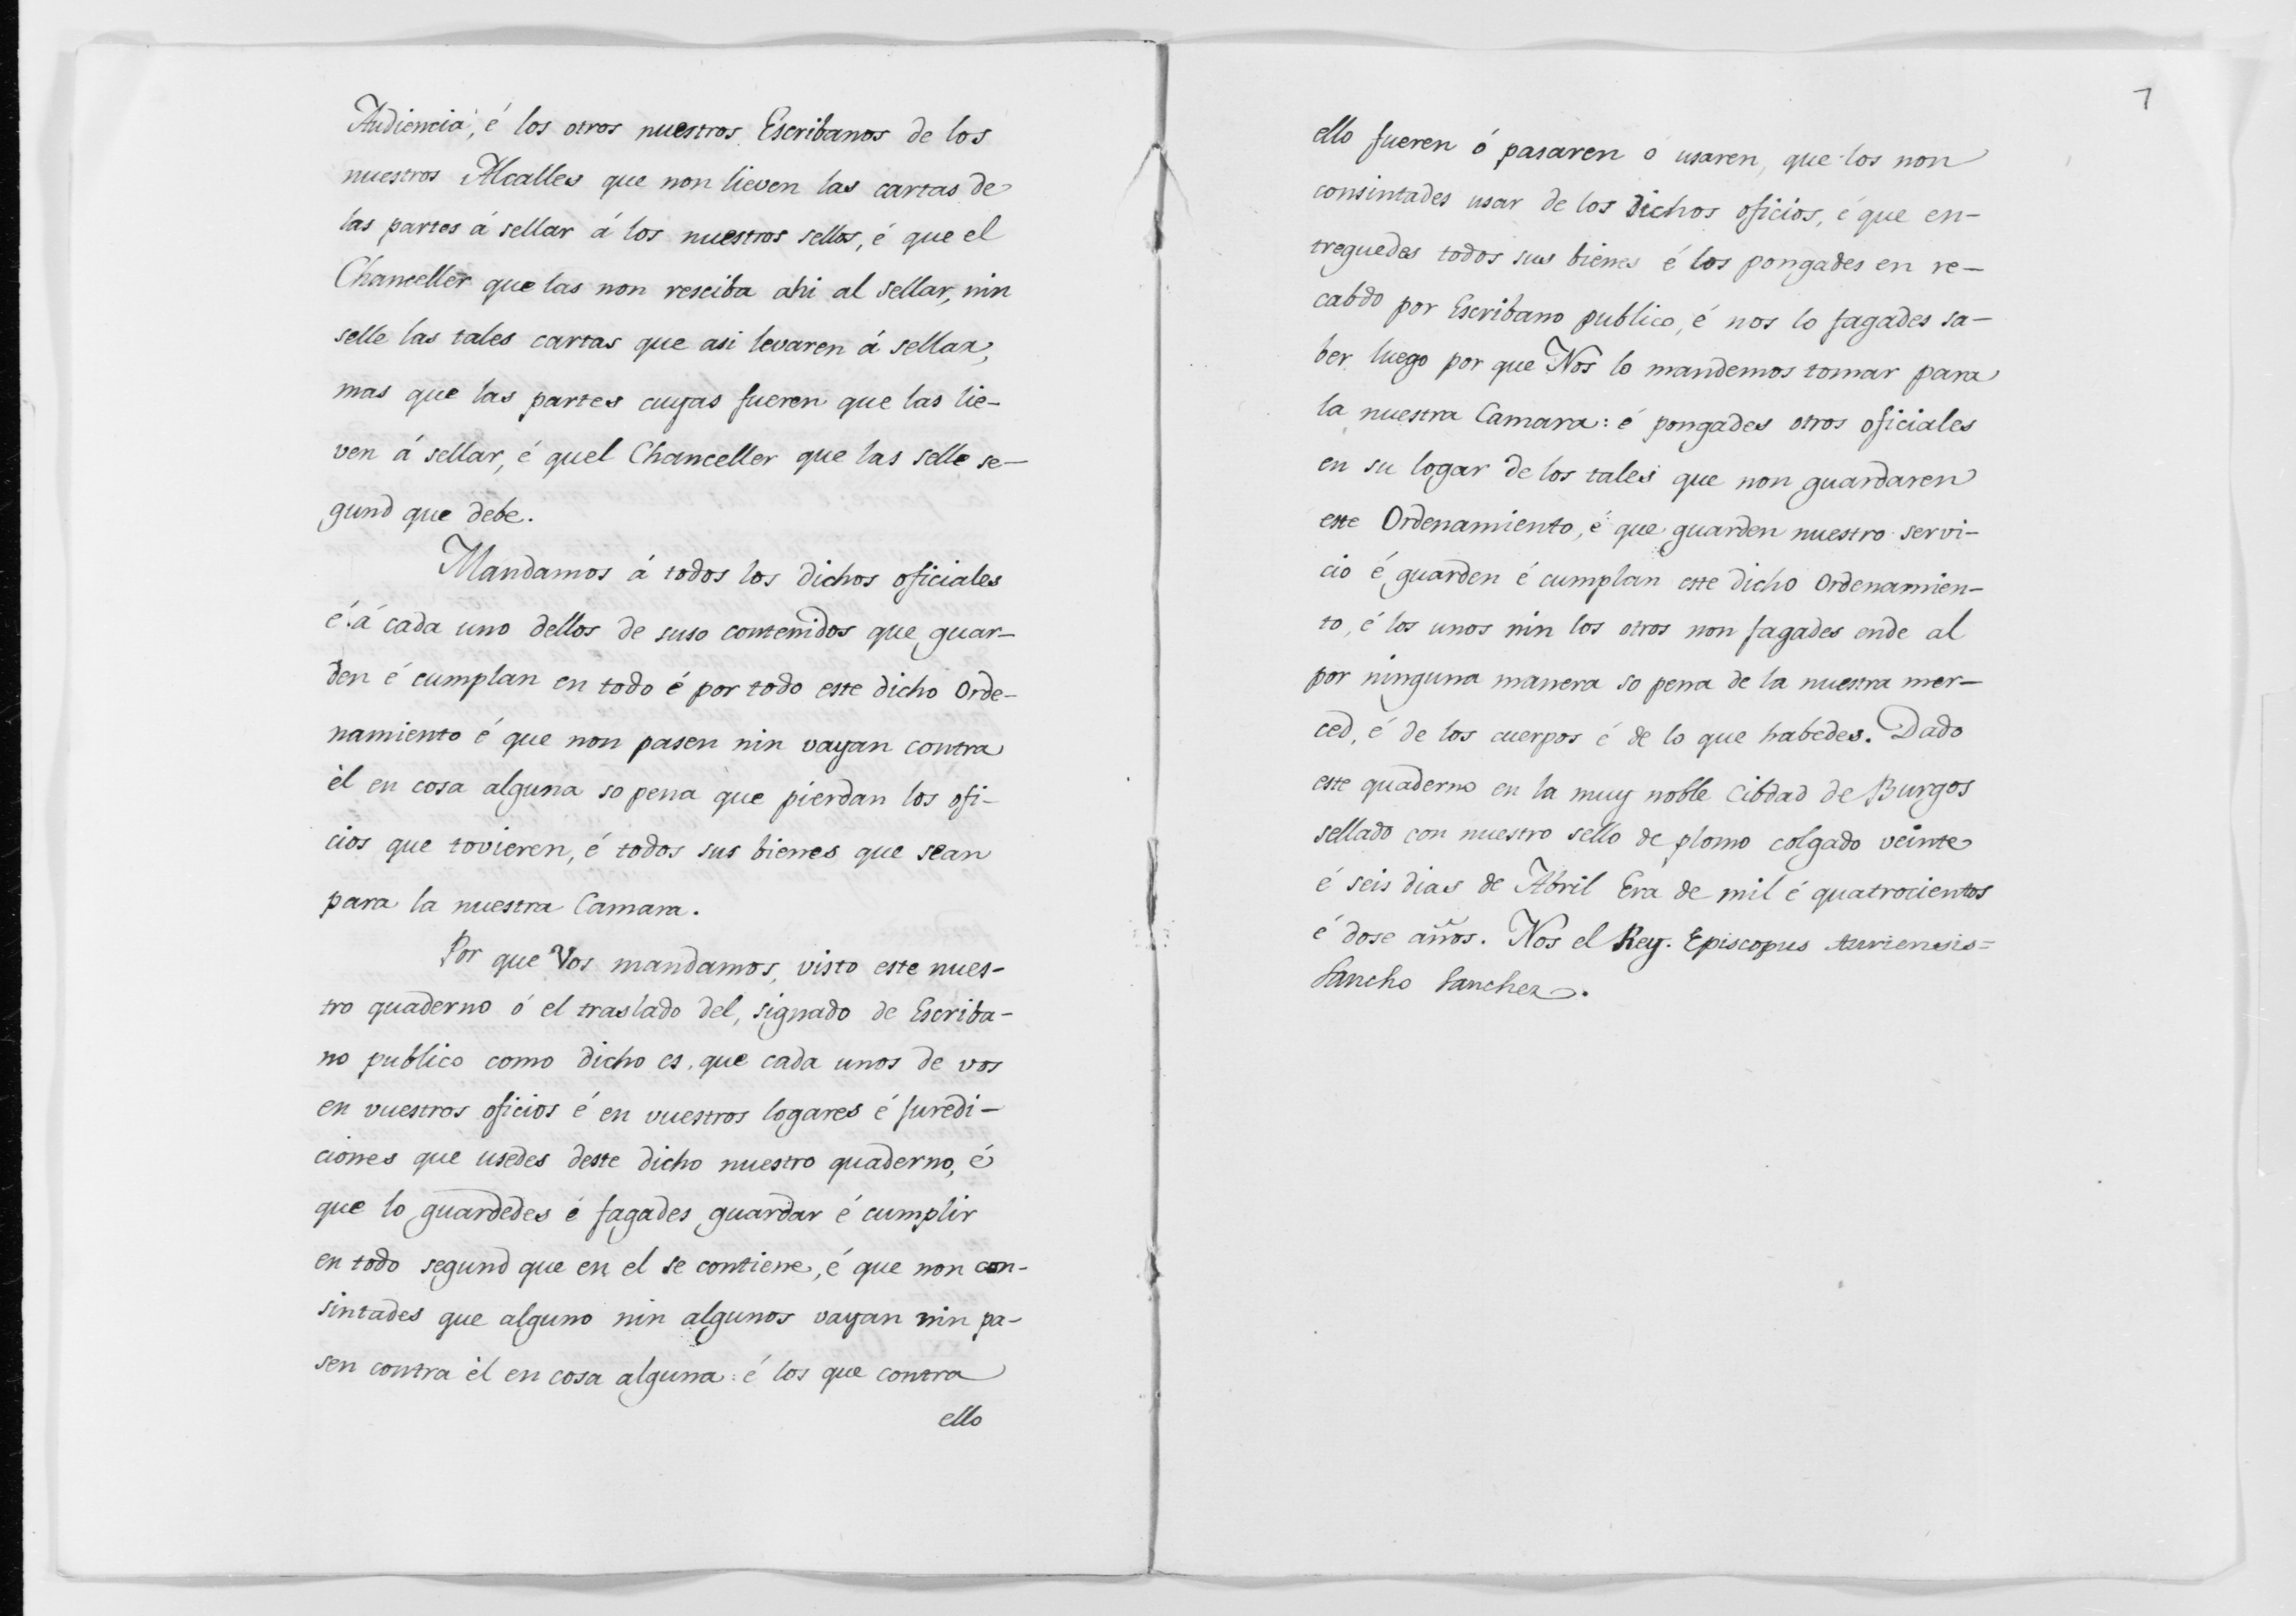 Audiencia, é los otros nuestros Escribanos de los
nuestros Alcalles que non lieven las cartas de
las partes á sellar á los nuestros sellos, é que el
Chanceller que las non resciba ahi al sellar, nin
selle las tales cartas que asi levaren á sellar,
mas que las partes cuyas fueren que las lie-
ven á sellar, é quel Chanceller que las selle se-
gund que debe.
Mandamos á todos los dichos oficiales
é á cada uno dellos de suso contenidos que guar-
den é cumplan en todo é por todo este dicho Orde-
namiento é que non pasen nin vayan contra
él en cosa alguna so pena que pierdan los ofi-
cios que tovieren, é todos sus bienes que sean
para la nuestra Camara.
Por que Vos mandamos, visto este nues-
tro quaderno ó el traslado del, signado de Escriba-
no publico como dicho es, que cada unos de vos
en vuestros oficios é en vuestros logares é juredi-
ciones que usedes deste dicho nuestro quaderno, é
que lo guardedes é fagades guardar é cumplir
en todo segund que en el se contiene, é que non con-
sintades que alguno nin algunos vayan nin pa-
sen contra él en cosa alguna: é los que contra
ello
7
ello fueren ó pasaren o usaren, que los non
consintades usar de los dichos oficios, é que en-
treguedes todos sus bienes é los pongades en re-
cabdo por Escribano publico, é nos lo fagades sa-
ber luego por que Nos lo mandemos tomar para
la nuestra Camara: é pongades otros oficiales
en su logar de los tales que non guardaren
este Ordenamiento, é que guarden nuestro servi-
cio é guarden é cumplan este dicho Ordenamien-
to, é los unos nin los otros non fagades ende al
por ninguna manera so pena de la nuestra mer-
ced, é de los cuerpos é de lo que habedes. Dado
este quaderno en la muy noble Cibdad de Burgos
sellado con nuestro sello de plomo colgado veinte
é seis dias de Abril Era de mil é quatrocientos
é dose años. Nos el Rey. Episcopus Auriensis=
Sancho Sanchez.